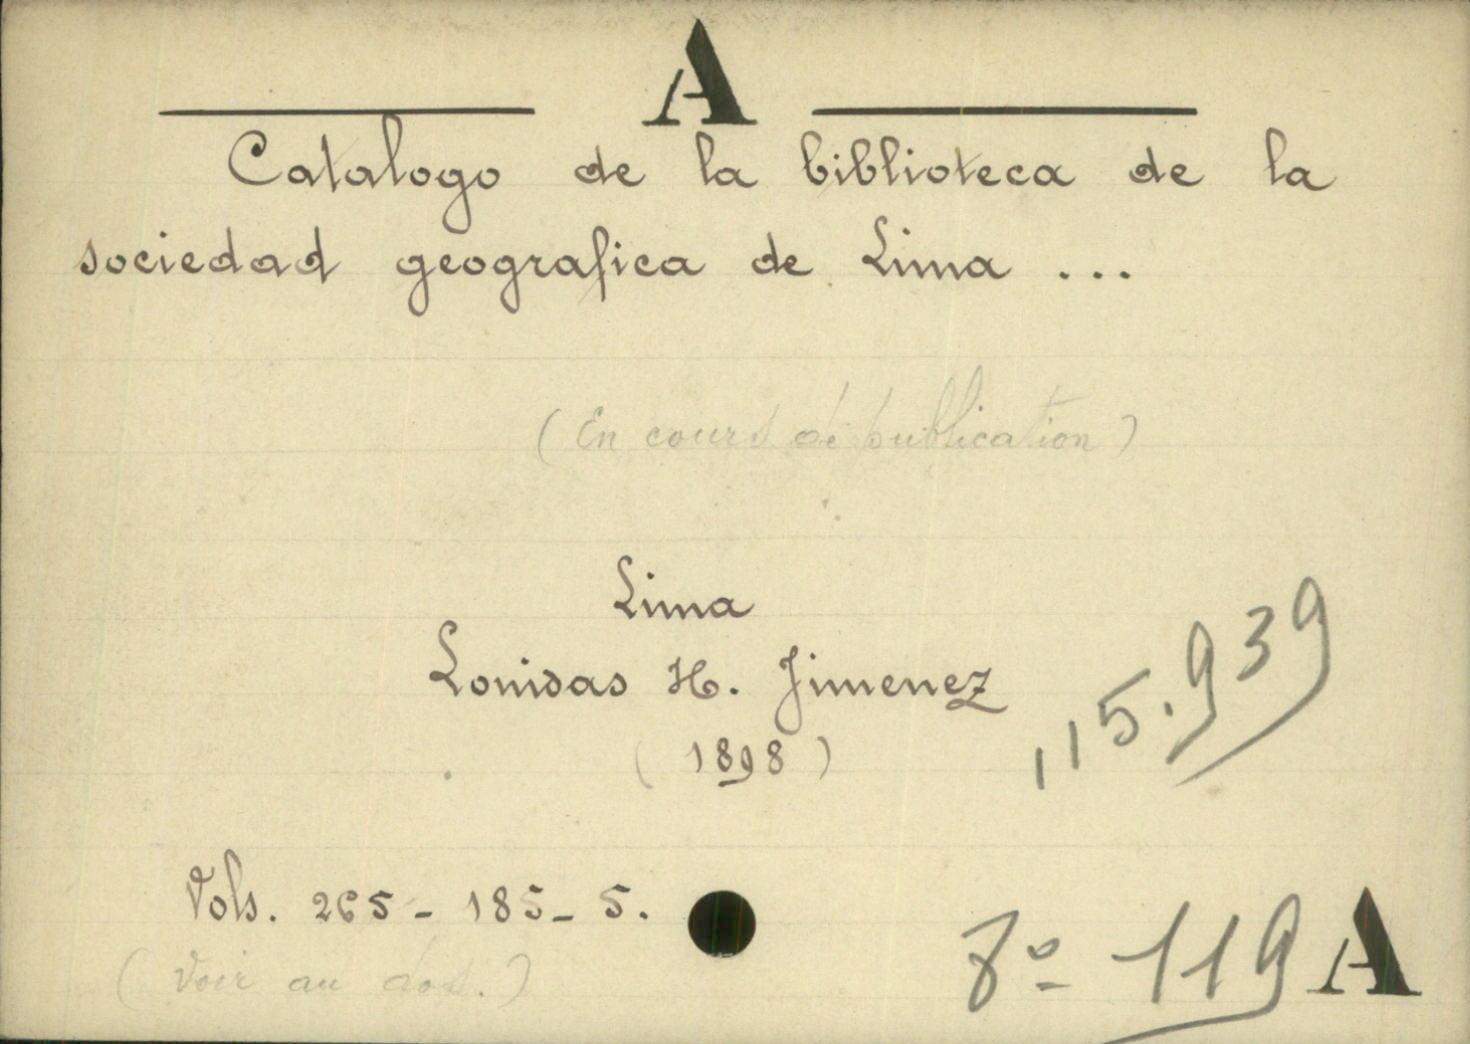 A
Catalogo de la biblioteca de la
sociedad geografica de Lima ...
(En cours de publication)
Lima
Lonidas H. Jimenez
(1898)
115.939
Vols. 265 - 185 - 5.
(Voir au dos.)
8º - 119 A